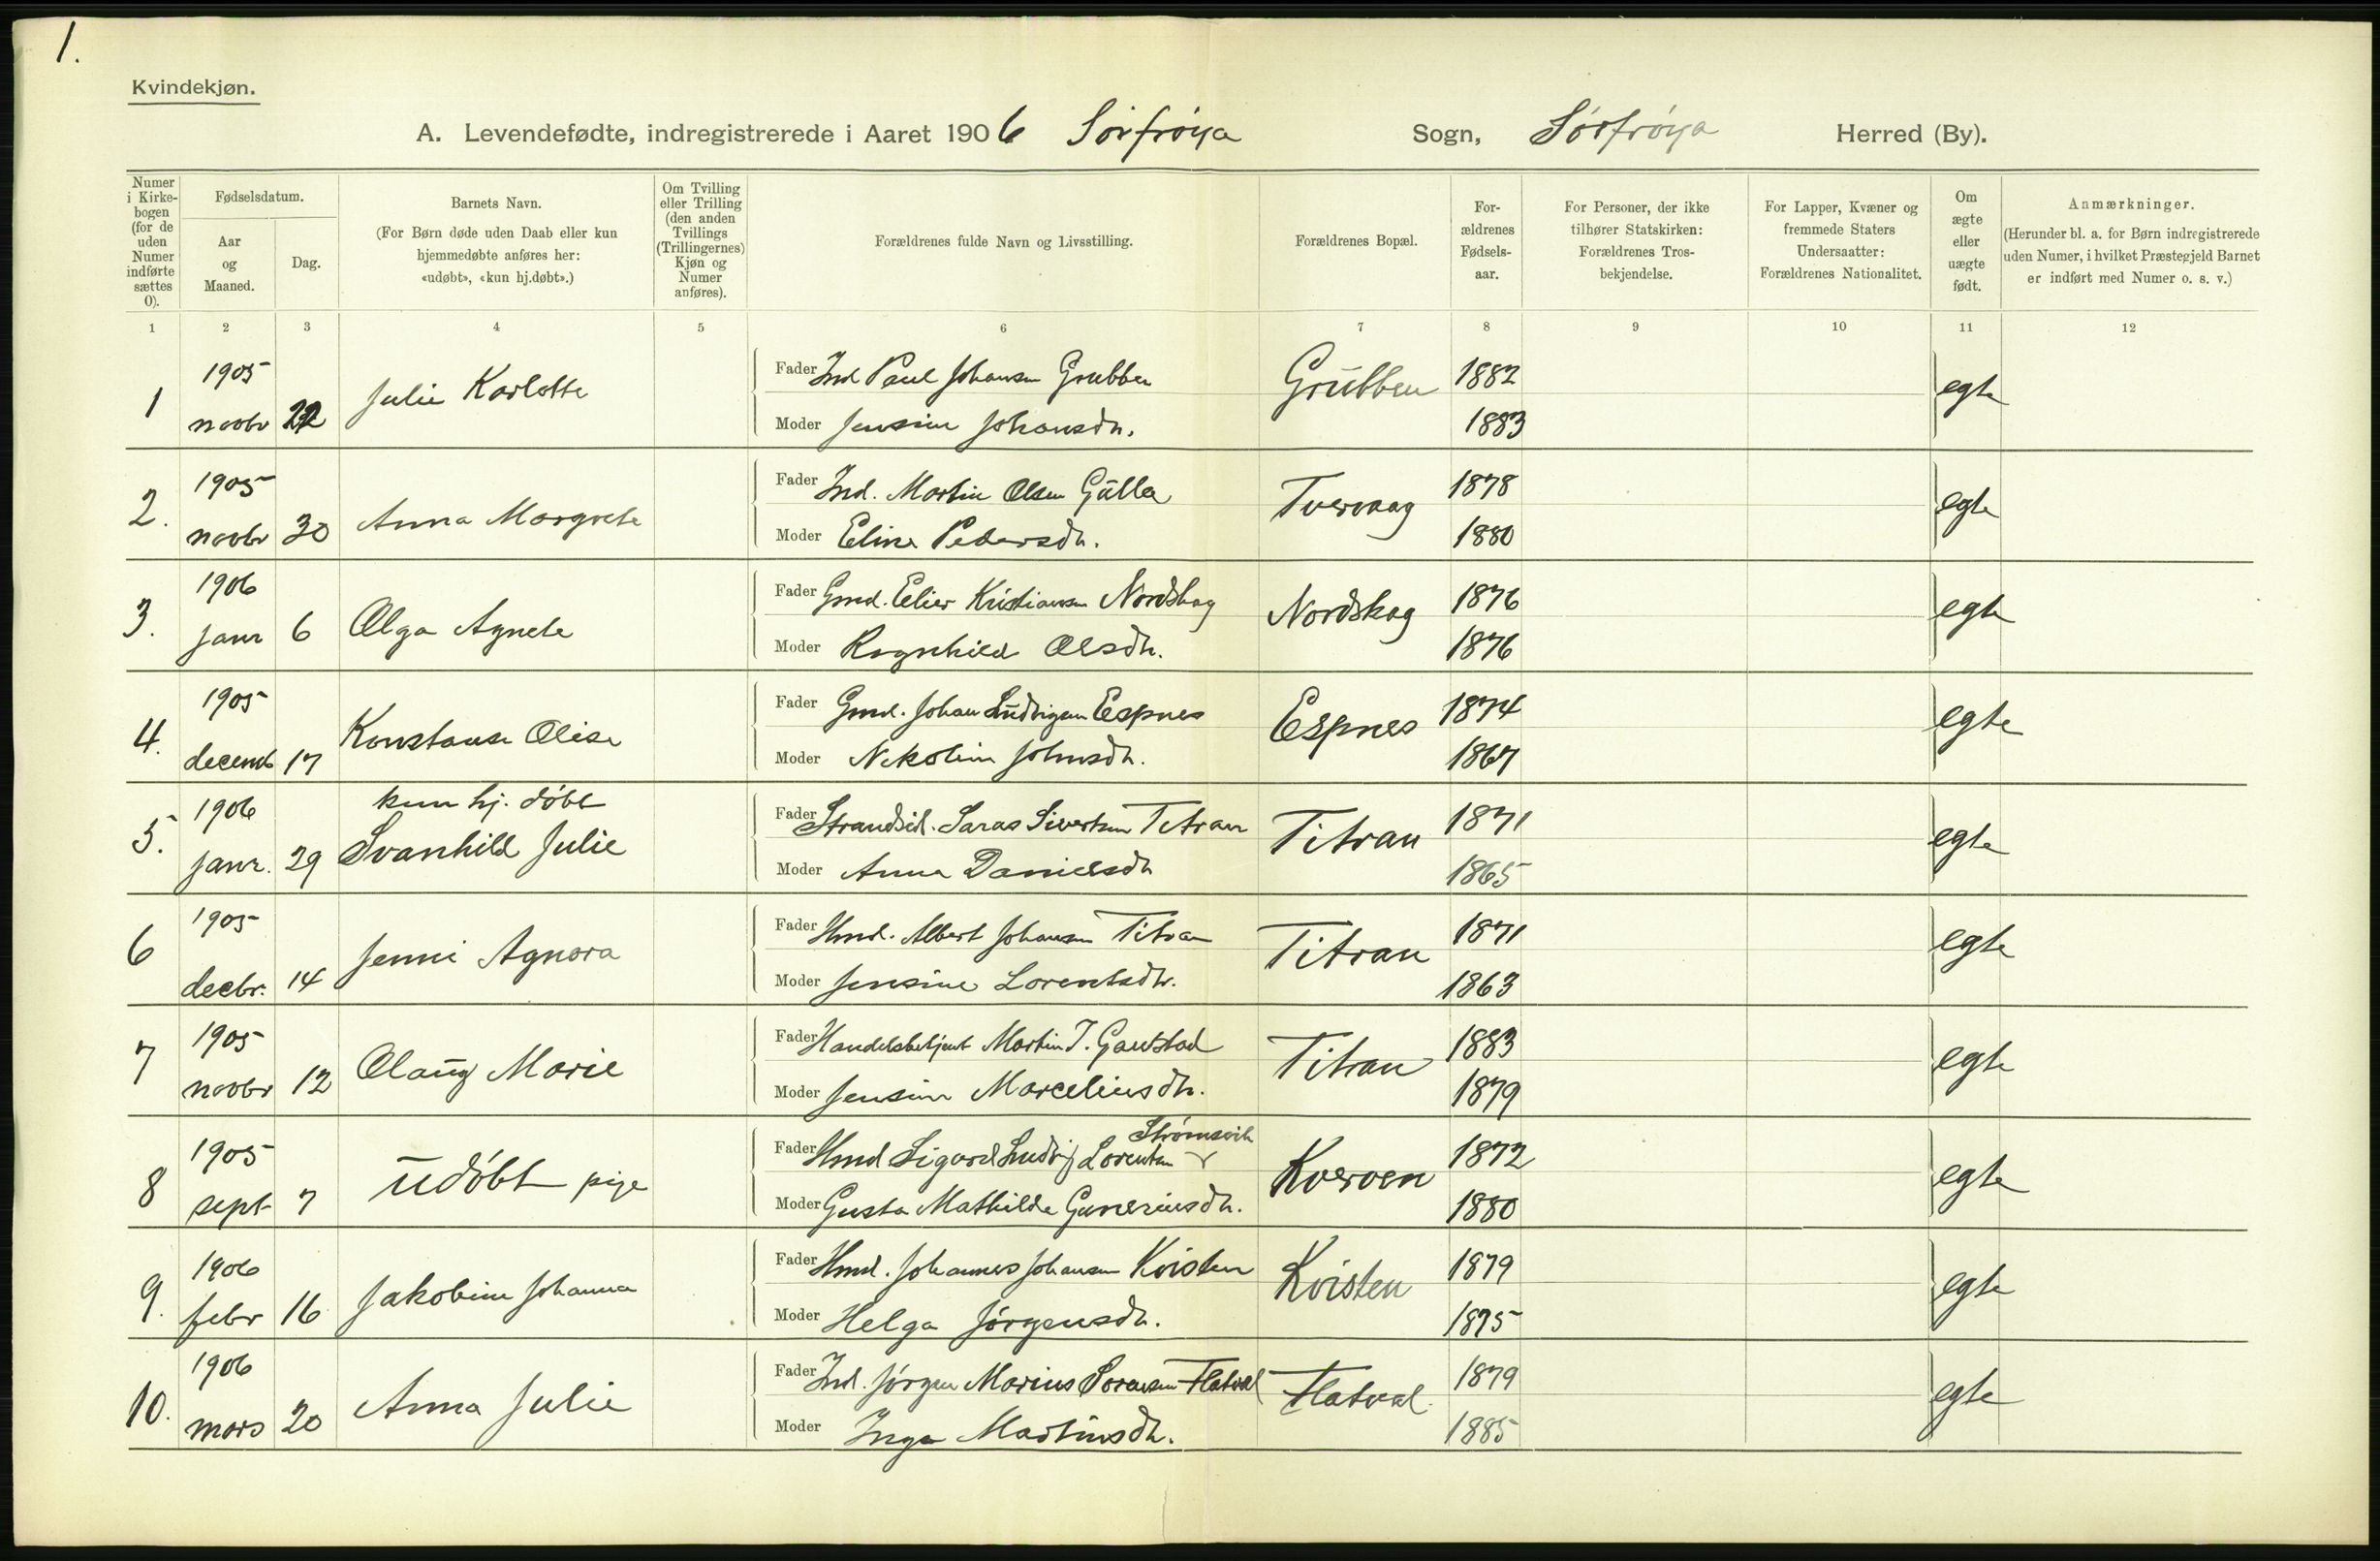 1.
Kvindekjøn.
A. Levendefødte, indregistrerede i Aaret 1906 Sørfrøya Sogn, Sørfrøya Herred (By).
Numer i Kirkebogen (for de uden Numer indførte sættes 0).
Fødselsdatum.
Aar og Maaned.
Dag.
Barnets Navn.
(For Børn døde uden Daab eller kun hjemmedøbte anføres her: «udøbt», «kun hj.døbt».)
Om Tvilling eller Trilling (den anden Tvillings (Trillingernes) Kjøn og Numer anføres).
Forældrenes fulde Navn og Livsstilling.
Forældrenes Bopæl.
Forældrenes Fødselsaar.
For Personer, der ikke tilhører Statskirken: Forældrenes Trosbekjendelse.
For Lapper, Kvæner og fremmede Staters Undersaatter: Forældrenes Nationalitet.
Om ægte eller uægte født.
Anmærkninger.
(Herunder bl. a. for Børn indregistrerede uden Numer, i hvilket Præstegjeld Barnet er indført med Numer o. s. v.)
1 2 3 4 5 6 7 8 9 10 11 12
1 1905 novbr 22 Julie Karlotte Fader Ind Paul Johansen Grubben Grubben 1882 egte
Moder Jensine Johansdtr. 1883
2. 1905 novbr 30 Anna Margrete Fader Ind. Martin Olsen Gulla Tvervaag 1878 egte
Moder Eline Pedersdtr. 1880
3. 1906 janr 6 Olga Agnete Fader Gmd. Elier Kristiansen Nordskag Nordskag 1876 egte
Moder Ragnhild Olsdtr. 1876
4. 1905 decemb 17 Konstanse Olise Fader Gmd. Johan Ludvigsen Espnes Espnes 1874 egte
Moder Nikoline Johnsdtr. 1867
kun hj. døbt
5. 1906 janr. 29 Svanhild Julie Fader Strandsid. Saras Sivertsen Titran Titran 1871 egte
Moder Anna Danielsdtr 1865
6 1905 decbr. 14 Jenni Agnora Fader Hmd. Albert Johansen Titran Titran 1871 egte
Moder Jensine Lorentsdtr. 1863
7 1905 novbr 12 Olaug Marie Fader Handelsbetjent Martin J. Gaustad Titran 1883 egte
Moder Jensine Marceliusdtr. 1879
8 1905 sept 7 udøbt pige Fader Hmd Sigvard Ludvig Lorentsen Strømsvik Kverven 1872 egte
Moder Gusta Mathilde Guneriusdtr. 1880
9. 1906 febr 16 Jakobine Johanna Fader Hmd. Johannes Johansen Kvisten Kvisten 1879 egte
Moder Helga Jørgensdtr. 1875
10. 1906 mars 20 Anna Julie Fader Ind. Jørgen Marius Sørensen Flatval Flatval 1879 egte
Moder Inga Martinsdtr. 1885